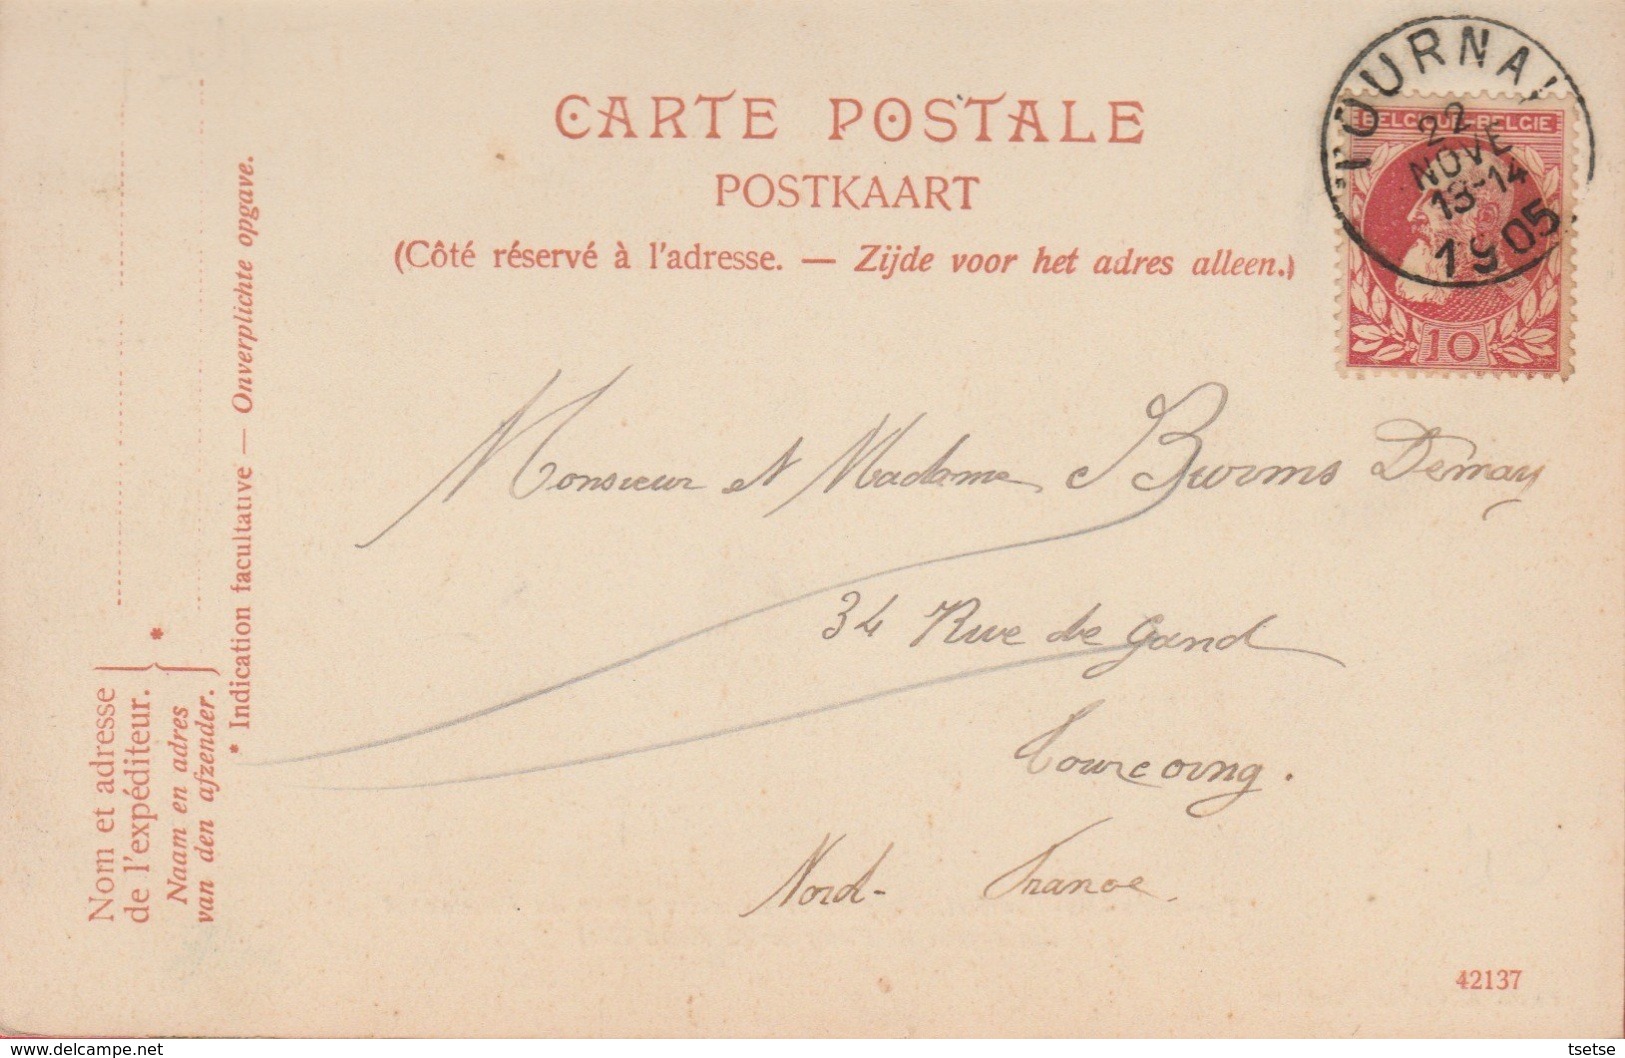 CARTE POSTALE
POSTKAART
(Côté réservé à l'adresse. — Zijde voor het adres alleen.)
TOURNAI
22
NOVE
13-14
1905
BELGIQUE-BELGIE
10
Monsieur et Madame Burms Demay
34 Rue de Gand
Tourcoing.
Nord - France.
Nom et adresse
de l'expéditeur.
Naam en adres
van den afzender.
*
* Indication facultative — Onverplichte opgave.
42137
delcampe.net
tsetse